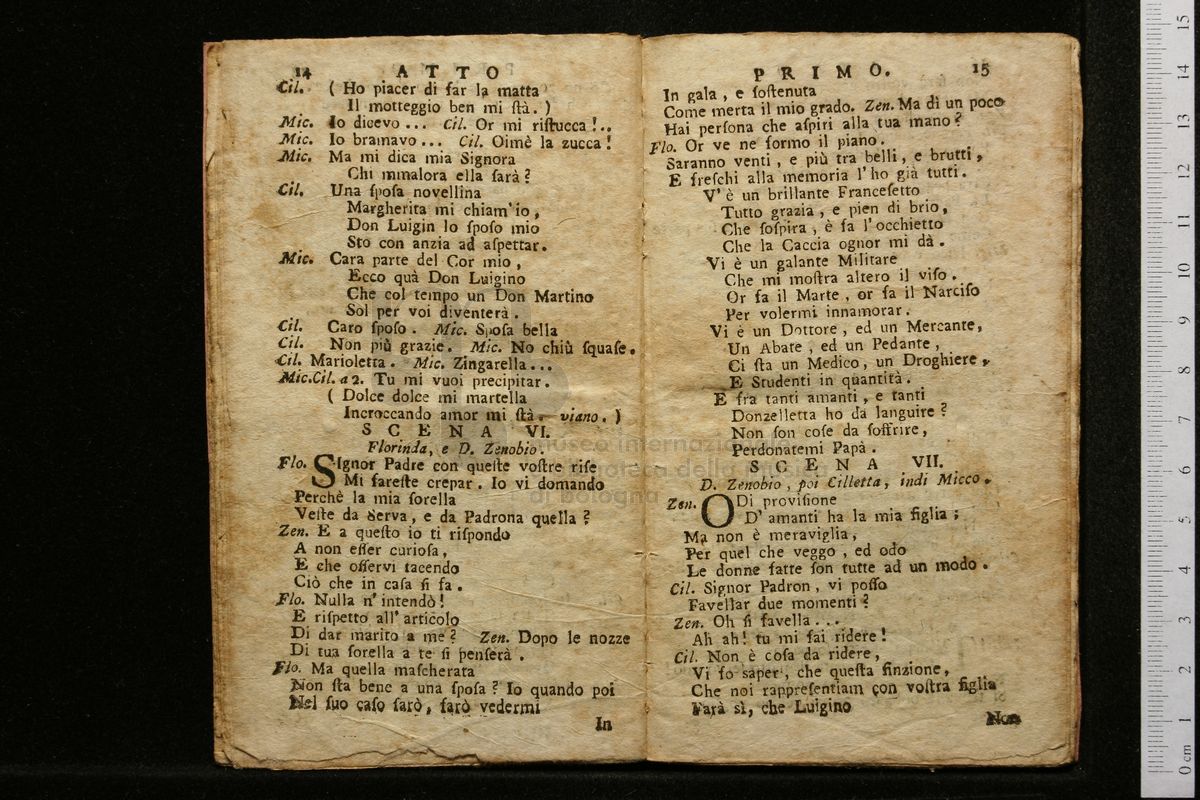 14 ATTO
Cil. ( Ho piacer di far la matta
Il motteggio ben mi ſtà. )
Mic. Io dicevo ... Cil. Or mi riſtucca!..
Mic. Io bramavo ... Cil. Oimè la zucca!
Mic. Ma mi dica mia Signora
Chi mmalora ella ſarà?
Cil. Una ſpoſa novellina
Margherita mi chiam'io,
Don Luigin lo ſpoſo mio
Sto con anzia ad aſpettar.
Mic. Cara parte del Cor mio,
Ecco quà Don Luigino
Che col tempo un Don Martino
Sol per voi diventerà.
Cil. Caro ſpoſo. Mic. Spoſa bella
Cil. Non più grazie. Mic. No chiù ſquaſe.
Cil. Marioletta. Mic. Zingarella...
Mic.Cil. a 2. Tu mi vuoi precipitar.
( Dolce dolce mi martella
Incroccando amor mi ſtà. viano. )
SCENA VI.
Florinda, e D. Zenobio.
Flo. SIgnor Padre con queſte voſtre riſe
Mi fareſte crepar. Io vi domando
Perchè la mia ſorella
Veſte da Serva, e da Padrona quella?
Zen. E a queſto io ti riſpondo
A non eſſer curioſa,
E che oſſervi tacendo
Ciò che in caſa ſi fa.
Flo. Nulla n'intendò!
E riſpetto all'articolo
Di dar marito a me? Zen. Dopo le nozze
Di tua ſorella a te ſi penſerà.
Flo. Ma quella maſcherata
Non ſta bene a una ſpoſa? Io quando poi
Nel ſuo caſo ſarò, farò vedermi
In
PRIMO. 15
In gala, e ſoſtenuta
Come merta il mio grado. Zen. Ma di un poco
Hai perſona che aſpiri alla tua mano?
Flo. Or ve ne formo il piano.
Saranno venti, e più tra belli, e brutti,
E freſchi alla memoria l'ho già tutti.
V'è un brillante Franceſetto
Tutto grazia, e pien di brio,
Che ſoſpira, è fa l'occhietto
Che la Caccia ognor mi dà.
Vi è un galante Militare
Che mi moſtra altero il viſo.
Or fa il Marte, or fa il Narciſo
Per volermi innamorar.
Vi è un Dottore, ed un Mercante,
Un Abate, ed un Pedante,
Ci ſta un Medico, un Droghiere,
E Studenti in quantità.
E fra tanti amanti, e tanti
Donzelletta ho da languire?
Non ſon coſe da ſoffrire,
Perdonatemi Papà.
SCENA VII.
D. Zenobio, poi Cilletta, indi Micco.
Zen. ODi proviſione
D'amanti ha la mia figlia;
Ma non è meraviglia,
Per quel che veggo, ed odo
Le donne fatte ſon tutte ad un modo.
Cil. Signor Padron, vi poſſo
Favellar due momenti?
Zen. Oh ſi favella...
Ah ah! tu mi fai ridere!
Cil. Non è coſa da ridere,
Vi fo saper, che queſta finzione,
Che noi rappreſentiam con voſtra figlia
Farà sì, che Luigino
Non
museo internazionale
e biblioteca della musica
di bologna
0 cm 1 2 3 4 5 6 7 8 9 10 11 12 13 14 15